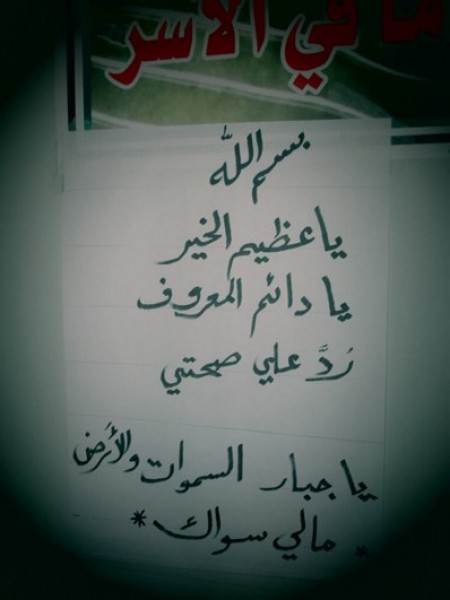 ما في الأسر
بسم الله
يا عظيم الخير
يا دائم المعروف
رُدَّ علي صحتي
يا جبار السموات والأرض
* مالي سواك *